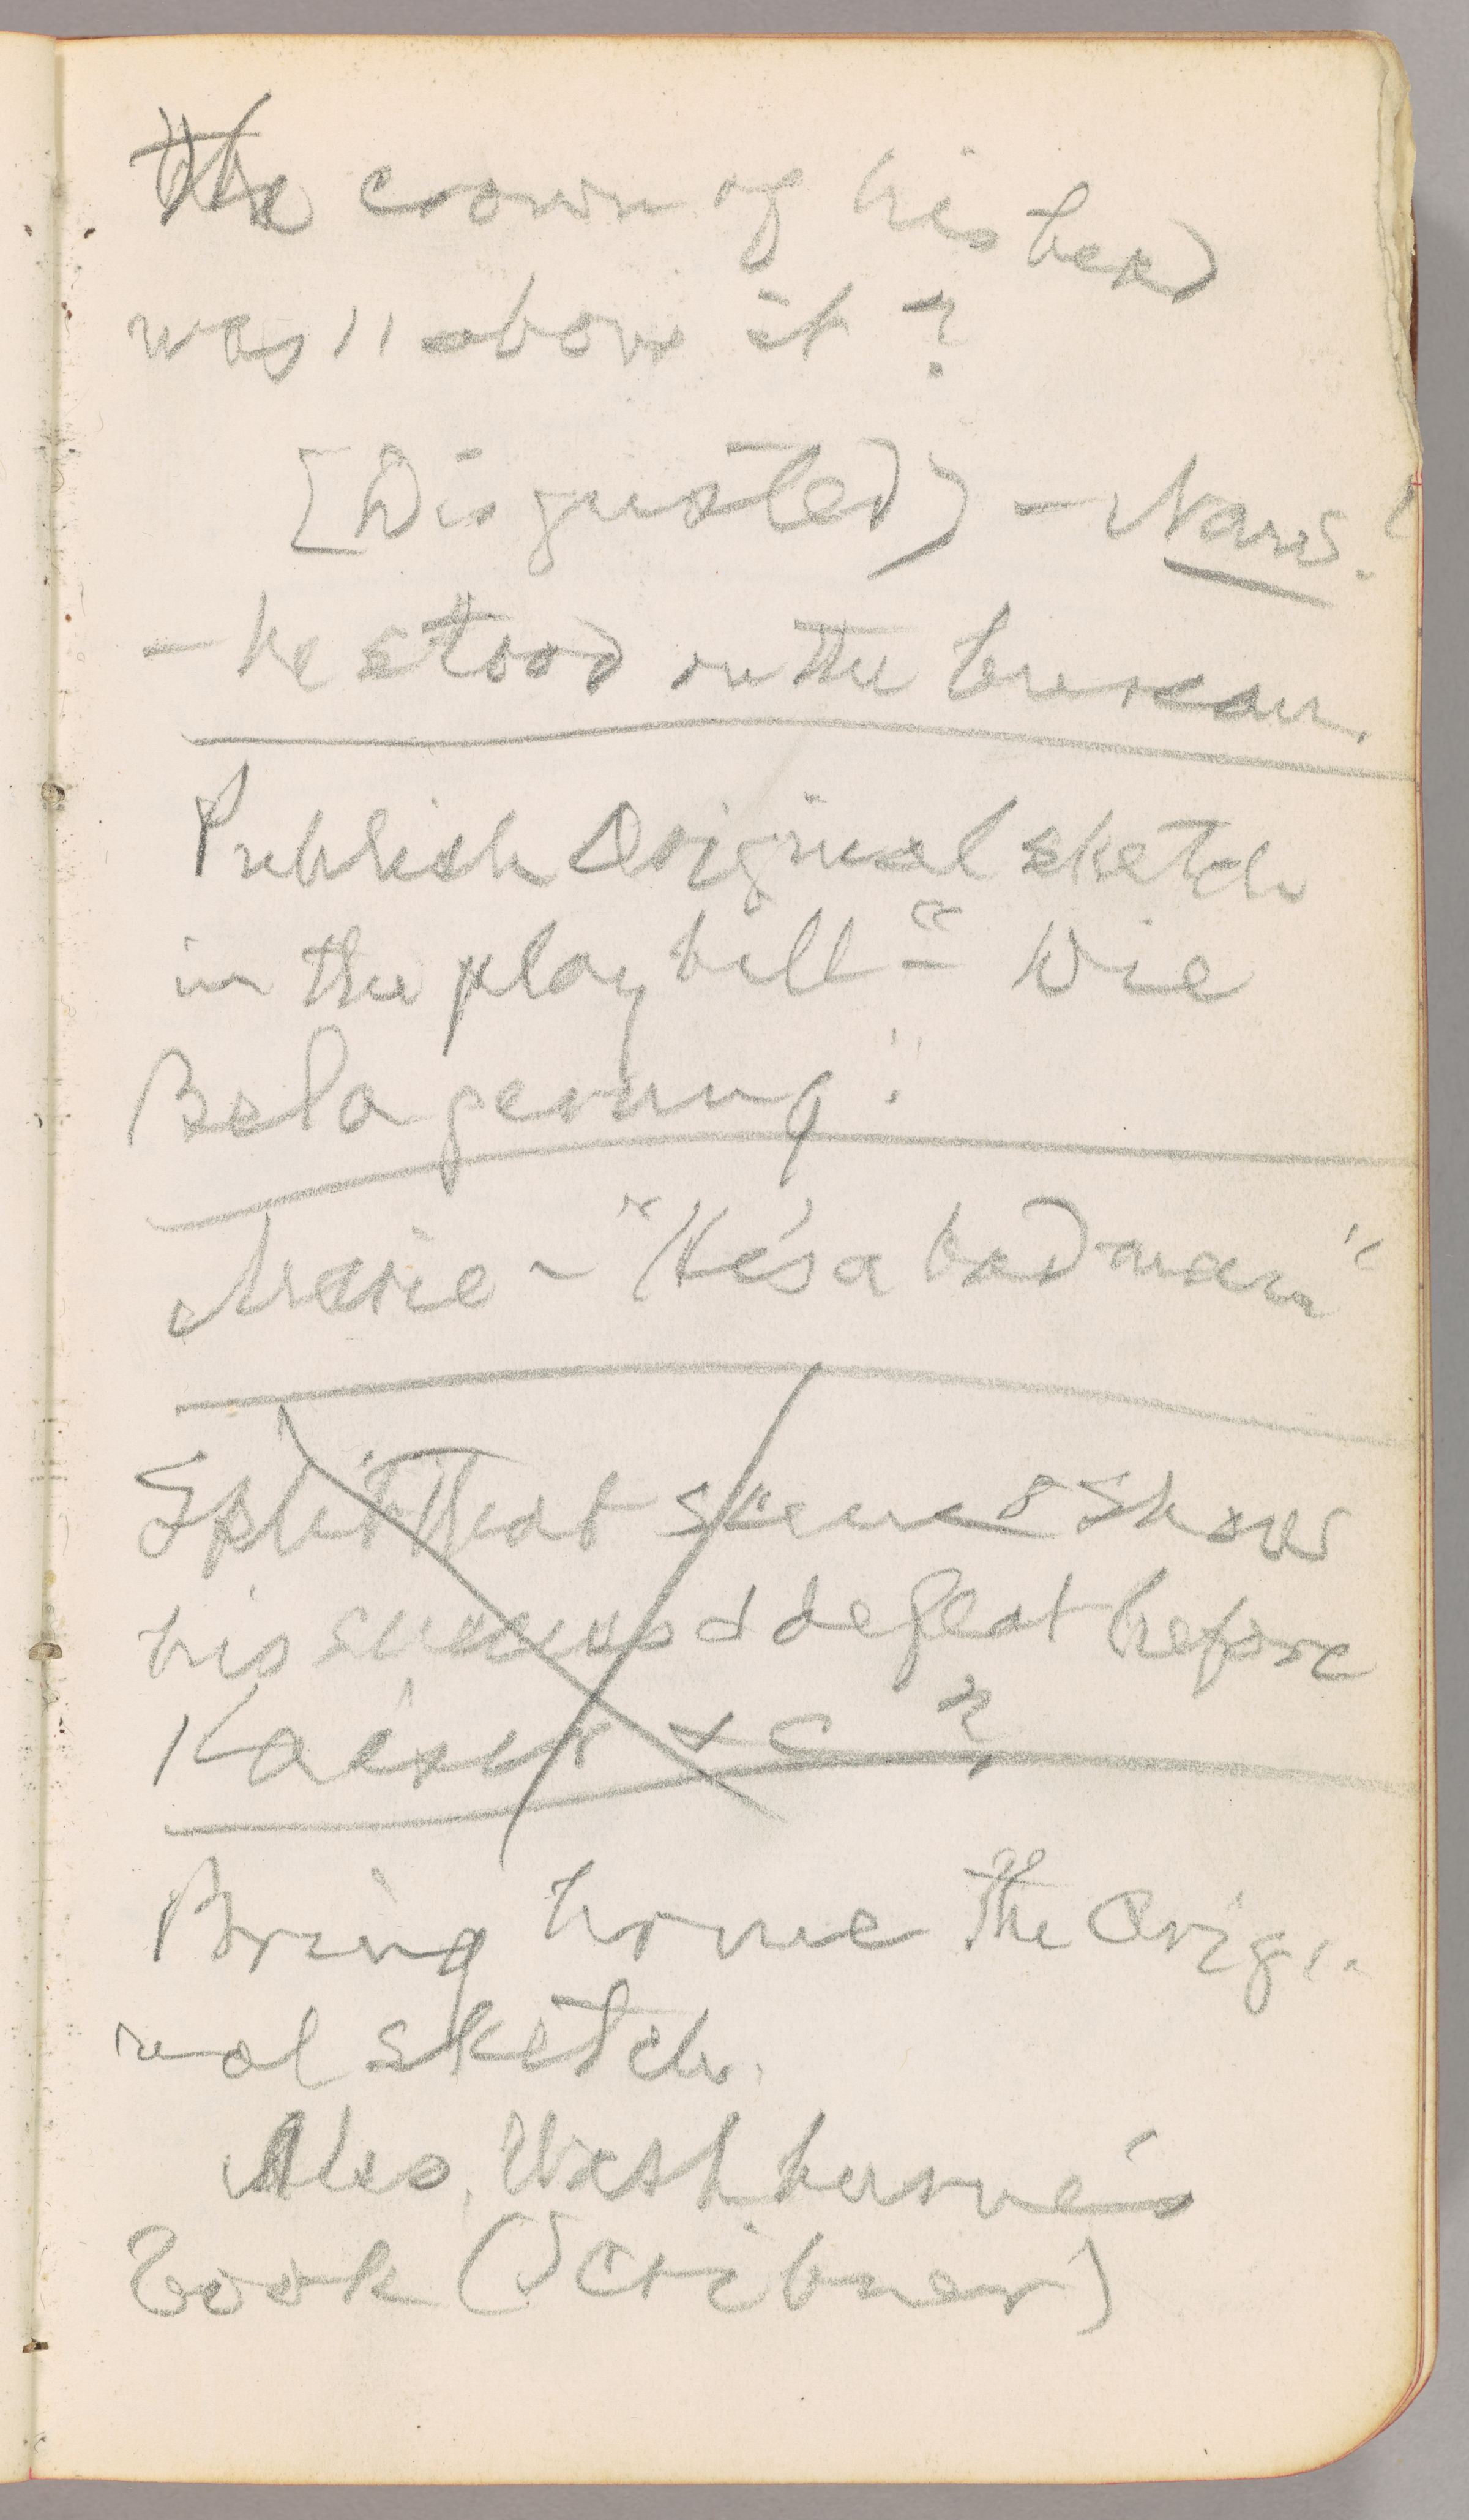 the crown of his head
was 11 above it?
[Disgusted] — Naws!
— he stood on the bureau.
Publish Original sketch
in the playbill — "Die
Belagerung."
Marie — "He's a bad man"
Split that scene & show
his success & defeat before
Kaiser &c?
Bring home the Origi-
nal sketch.
Also, Washburne's
book (Scribner)